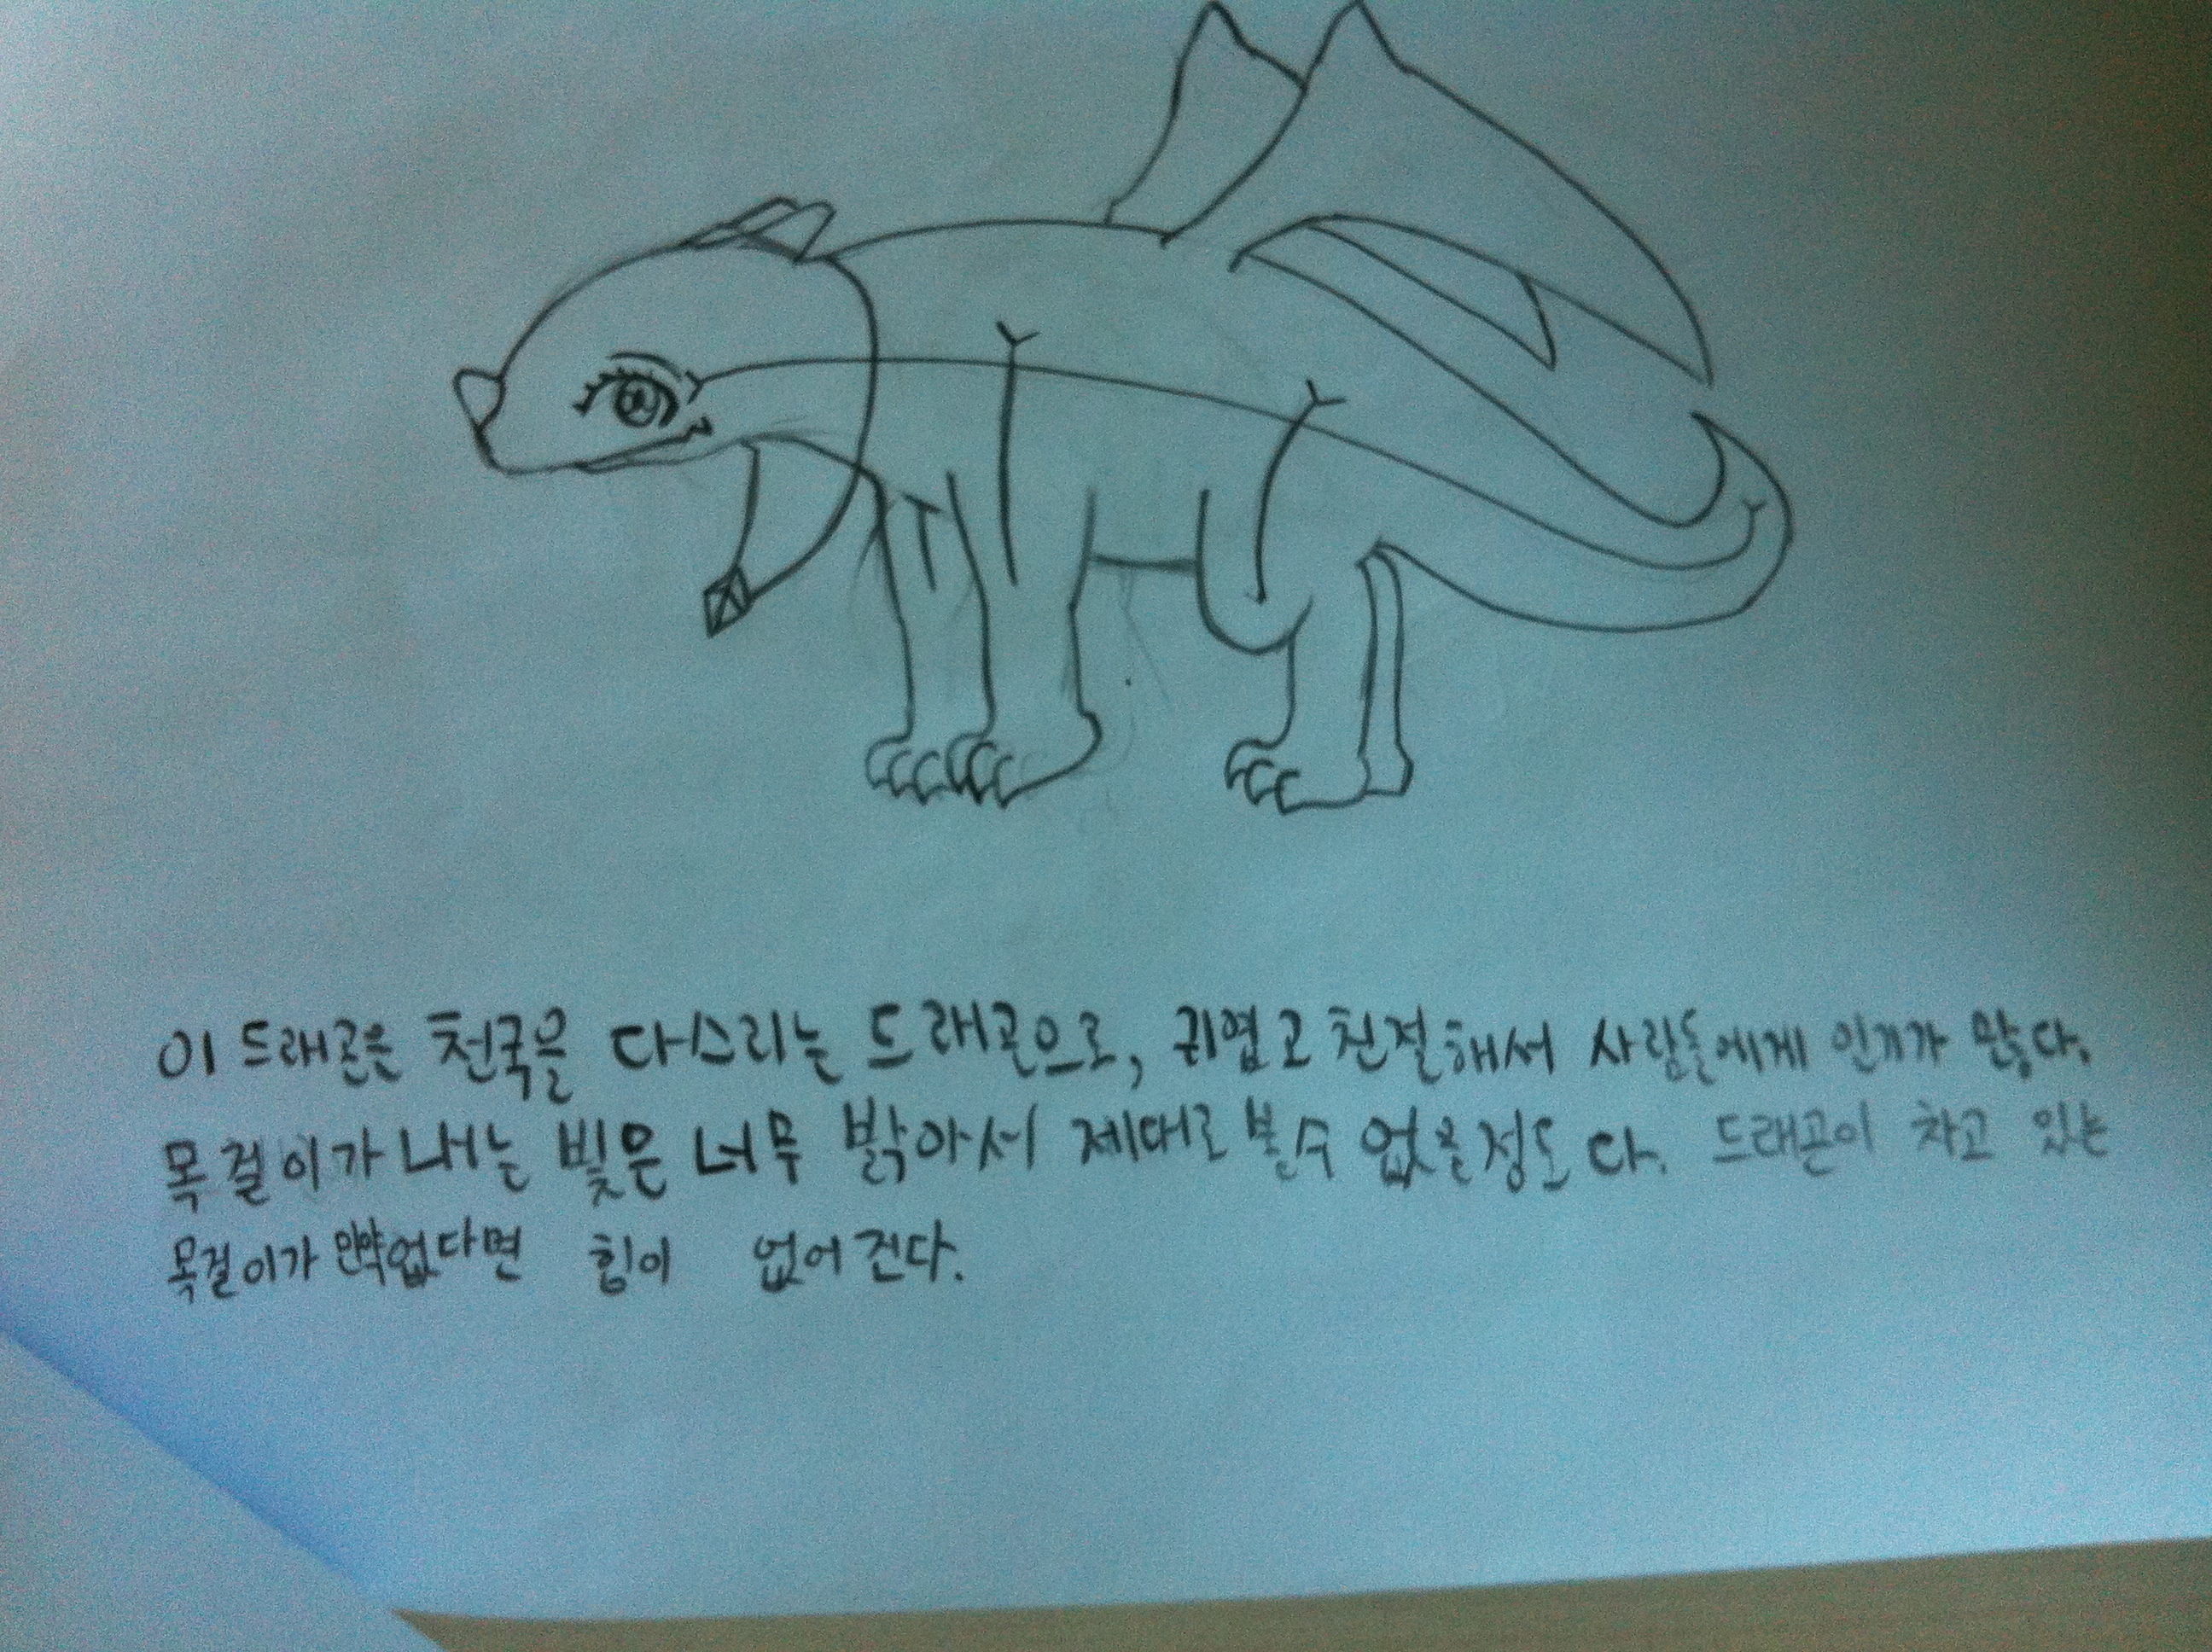 이 드래곤은 천국을 다스리는 드래곤으로, 귀엽고 친절해서 사람들에게 인기가 많다.
목걸이가 내는 빛은 너무 밝아서 제대로 볼수 없을정도다. 드래곤이 차고 있는
목걸이가 만약없다면 힘이 없어진다.